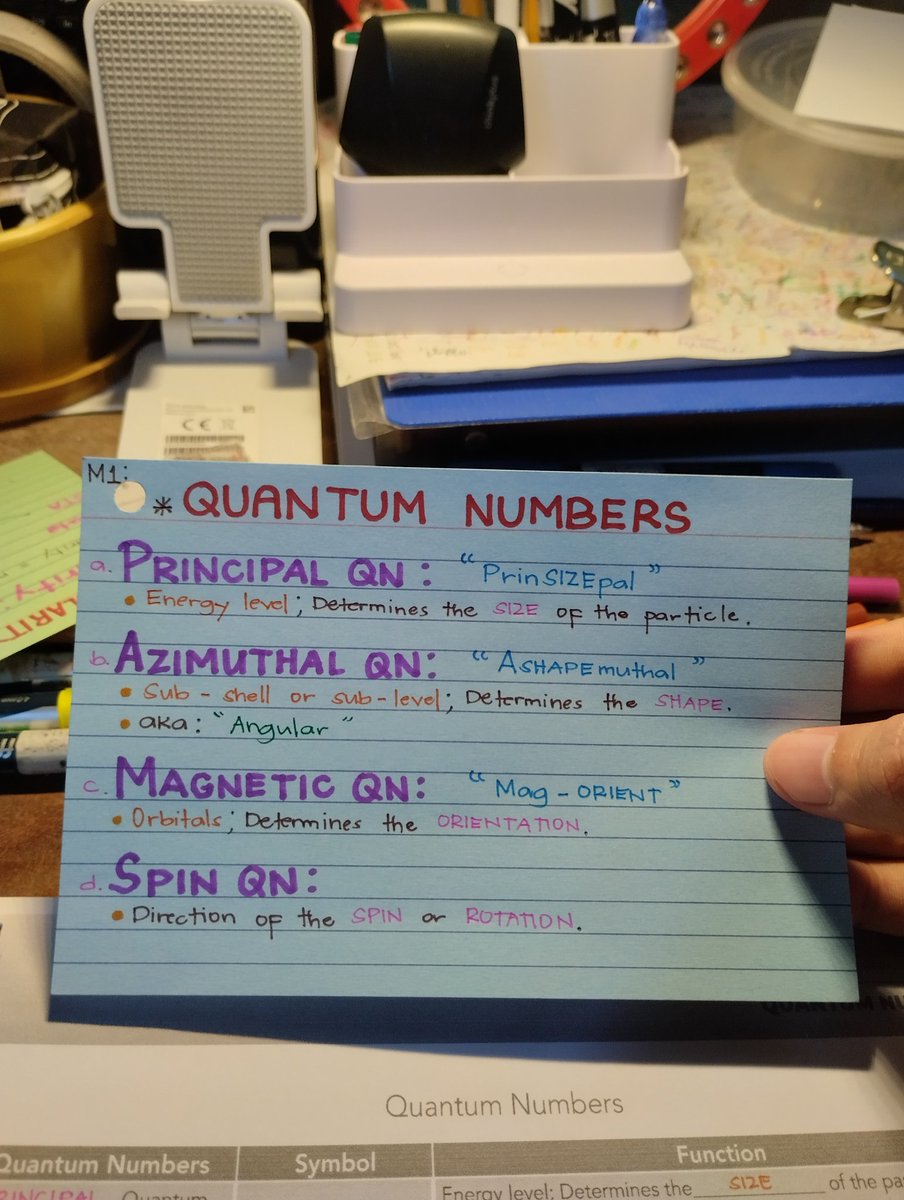 M1:
* QUANTUM NUMBERS
a. PRINCIPAL QN: "PrinSIZEpal"
• Energy level; Determines the SIZE of the particle.
b. AZIMUTHAL QN: "ASHAPEmuthal"
• Sub-shell or sub-level; Determines the SHAPE.
• aka: "Angular"
c. MAGNETIC QN: "Mag-ORIENT"
• Orbitals; Determines the ORIENTATION.
d. SPIN QN:
• Direction of the SPIN or ROTATION.
Quantum Numbers
Quantum Numbers Symbol Function
PRINCIPAL Quantum Energy level; Determines the SIZE of the